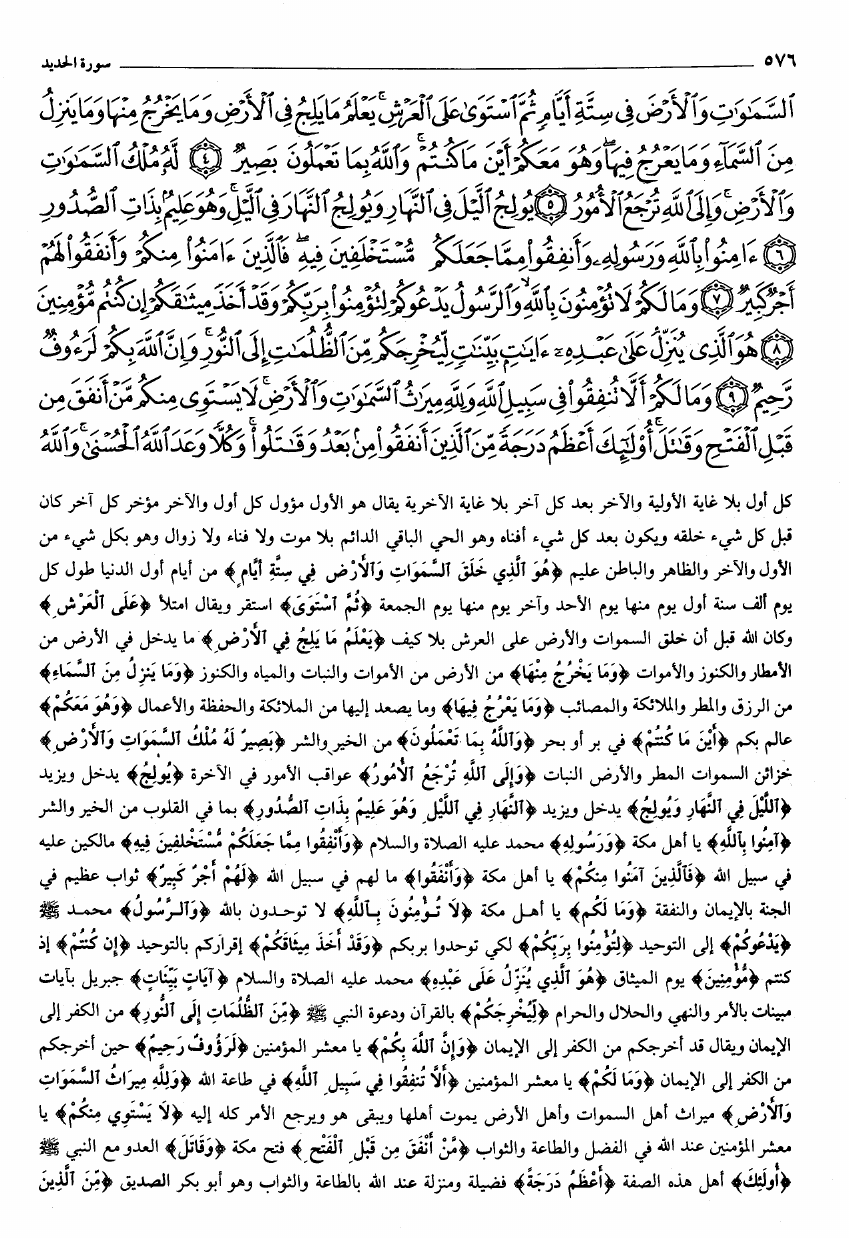 ٥٧٦ سورة الحديد
ٱلسَّمَٰوَٰتِ وَٱلْأَرْضَ فِى سِتَّةِ أَيَّامٍ ثُمَّ ٱسْتَوَىٰ عَلَى ٱلْعَرْشِ ۚ يَعْلَمُ مَا يَلِجُ فِى ٱلْأَرْضِ وَمَا يَخْرُجُ مِنْهَا وَمَا يَنزِلُ
مِنَ ٱلسَّمَآءِ وَمَا يَعْرُجُ فِيهَا ۖ وَهُوَ مَعَكُمْ أَيْنَ مَا كُنتُمْ ۚ وَٱللَّهُ بِمَا تَعْمَلُونَ بَصِيرٌ ﴿٤﴾ لَّهُۥ مُلْكُ ٱلسَّمَٰوَٰتِ
وَٱلْأَرْضِ ۚ وَإِلَى ٱللَّهِ تُرْجَعُ ٱلْأُمُورُ ﴿٥﴾ يُولِجُ ٱلَّيْلَ فِى ٱلنَّهَارِ وَيُولِجُ ٱلنَّهَارَ فِى ٱلَّيْلِ ۚ وَهُوَ عَلِيمٌۢ بِذَاتِ ٱلصُّدُورِ
﴿٦﴾ ءَامِنُوا۟ بِٱللَّهِ وَرَسُولِهِۦ وَأَنفِقُوا۟ مِمَّا جَعَلَكُم مُّسْتَخْلَفِينَ فِيهِ ۖ فَٱلَّذِينَ ءَامَنُوا۟ مِنكُمْ وَأَنفَقُوا۟ لَهُمْ
أَجْرٌ كَبِيرٌ ﴿٧﴾ وَمَا لَكُمْ لَا تُؤْمِنُونَ بِٱللَّهِ ۙ وَٱلرَّسُولُ يَدْعُوكُمْ لِتُؤْمِنُوا۟ بِرَبِّكُمْ وَقَدْ أَخَذَ مِيثَٰقَكُمْ إِن كُنتُم مُّؤْمِنِينَ
﴿٨﴾ هُوَ ٱلَّذِى يُنَزِّلُ عَلَىٰ عَبْدِهِۦٓ ءَايَٰتٍۭ بَيِّنَٰتٍ لِّيُخْرِجَكُم مِّنَ ٱلظُّلُمَٰتِ إِلَى ٱلنُّورِ ۚ وَإِنَّ ٱللَّهَ بِكُمْ لَرَءُوفٌ
رَّحِيمٌ ﴿٩﴾ وَمَا لَكُمْ أَلَّا تُنفِقُوا۟ فِى سَبِيلِ ٱللَّهِ وَلِلَّهِ مِيرَٰثُ ٱلسَّمَٰوَٰتِ وَٱلْأَرْضِ ۚ لَا يَسْتَوِى مِنكُم مَّنْ أَنفَقَ مِن
قَبْلِ ٱلْفَتْحِ وَقَٰتَلَ ۚ أُو۟لَٰٓئِكَ أَعْظَمُ دَرَجَةً مِّنَ ٱلَّذِينَ أَنفَقُوا۟ مِنۢ بَعْدُ وَقَٰتَلُوا۟ ۚ وَكُلًّا وَعَدَ ٱللَّهُ ٱلْحُسْنَىٰ ۚ وَٱللَّهُ
كل أول بلا غاية الأولية والآخر بعد كل آخر بلا غاية الآخرية يقال هو الأول مؤول كل أول والآخر مؤخر كل آخر كان
قبل كل شيء خلقه ويكون بعد كل شيء أفناه وهو الحي الباقي الدائم بلا موت ولا فناء ولا زوال وهو بكل شيء من
الأول والآخر والظاهر والباطن عليم ﴿هُوَ ٱلَّذِي خَلَقَ ٱلسَّمَوَاتِ وَٱلْأَرْضَ فِي سِتَّةِ أَيَّامٍ﴾ من أيام أول الدنيا طول كل
يوم ألف سنة أول يوم منها يوم الأحد وآخر يوم منها يوم الجمعة ﴿ثُمَّ ٱسْتَوَى﴾ استقر ويقال امتلأ ﴿عَلَى ٱلْعَرْشِ﴾
وكان الله قبل أن خلق السموات والأرض على العرش بلا كيف ﴿يَعْلَمُ مَا يَلِجُ فِي ٱلْأَرْضِ﴾ ما يدخل في الأرض من
الأمطار والكنوز والأموات ﴿وَمَا يَخْرُجُ مِنْهَا﴾ من الأرض من الأموات والنبات والمياه والكنوز ﴿وَمَا يَنزِلُ مِنَ ٱلسَّمَاءِ﴾
من الرزق والمطر والملائكة والمصائب ﴿وَمَا يَعْرُجُ فِيهَا﴾ وما يصعد إليها من الملائكة والحفظة والأعمال ﴿وَهُوَ مَعَكُمْ﴾
عالم بكم ﴿أَيْنَ مَا كُنتُمْ﴾ في بر أو بحر ﴿وَٱللَّهُ بِمَا تَعْمَلُونَ﴾ من الخير والشر ﴿بَصِيرٌ لَهُ مُلْكُ ٱلسَّمَوَاتِ وَٱلْأَرْضِ﴾
خزائن السموات المطر والأرض النبات ﴿وَإِلَى ٱللَّهِ تُرْجَعُ ٱلْأُمُورُ﴾ عواقب الأمور في الآخرة ﴿يُولِجُ﴾ يدخل ويزيد
﴿ٱللَّيْلَ فِي ٱلنَّهَارِ وَيُولِجُ﴾ يدخل ويزيد ﴿ٱلنَّهَارَ فِي ٱللَّيْلِ وَهُوَ عَلِيمٌ بِذَاتِ ٱلصُّدُورِ﴾ بما في القلوب من الخير والشر
﴿آمِنُوا بِٱللَّهِ﴾ يا أهل مكة ﴿وَرَسُولِهِ﴾ محمد عليه الصلاة والسلام ﴿وَأَنْفِقُوا مِمَّا جَعَلَكُمْ مُّسْتَخْلَفِينَ فِيهِ﴾ مالكين عليه
في سبيل الله ﴿فَٱلَّذِينَ آمَنُوا مِنكُمْ﴾ يا أهل مكة ﴿وَأَنْفَقُوا﴾ ما لهم في سبيل الله ﴿لَهُمْ أَجْرٌ كَبِيرٌ﴾ ثواب عظيم في
الجنة بالإيمان والنفقة ﴿وَمَا لَكُم﴾ يا أهل مكة ﴿لَا تُؤْمِنُونَ بِٱللَّهِ﴾ لا توحدون بالله ﴿وَٱلرَّسُولُ﴾ محمد ﷺ
﴿يَدْعُوكُمْ﴾ إلى التوحيد ﴿لِتُؤْمِنُوا بِرَبِّكُمْ﴾ لكي توحدوا بربكم ﴿وَقَدْ أَخَذَ مِيثَاقَكُمْ﴾ إقراركم بالتوحيد ﴿إِن كُنْتُمْ﴾ إذ
كنتم ﴿مُّؤْمِنِينَ﴾ يوم الميثاق ﴿هُوَ ٱلَّذِي يُنَزِّلُ عَلَى عَبْدِهِ﴾ محمد عليه الصلاة والسلام ﴿آيَاتٍ بَيِّنَاتٍ﴾ جبريل بآيات
مبينات بالأمر والنهي والحلال والحرام ﴿لِّيُخْرِجَكُمْ﴾ بالقرآن ودعوة النبي ﷺ ﴿مِّنَ ٱلظُّلُمَاتِ إِلَى ٱلنُّورِ﴾ من الكفر إلى
الإيمان ويقال قد أخرجكم من الكفر إلى الإيمان ﴿وَإِنَّ ٱللَّهَ بِكُمْ﴾ يا معشر المؤمنين ﴿لَرَؤُوفٌ رَحِيمٌ﴾ حين أخرجكم
من الكفر إلى الإيمان ﴿وَمَا لَكُمْ﴾ يا معشر المؤمنين ﴿أَلَّا تُنفِقُوا فِي سَبِيلِ ٱللَّهِ﴾ في طاعة الله ﴿وَلِلَّهِ مِيرَاثُ ٱلسَّمَوَاتِ
وَٱلْأَرْضِ﴾ ميراث أهل السموات وأهل الأرض يموت أهلها ويبقى هو ويرجع الأمر كله إليه ﴿لَا يَسْتَوِي مِنكُمْ﴾ يا
معشر المؤمنين عند الله في الفضل والطاعة والثواب ﴿مَّنْ أَنْفَقَ مِن قَبْلِ ٱلْفَتْحِ﴾ فتح مكة ﴿وَقَاتَلَ﴾ العدو مع النبي ﷺ
﴿أُولَئِكَ﴾ أهل هذه الصفة ﴿أَعْظَمُ دَرَجَةً﴾ فضيلة ومنزلة عند الله بالطاعة والثواب وهو أبو بكر الصديق ﴿مِّنَ ٱلَّذِينَ